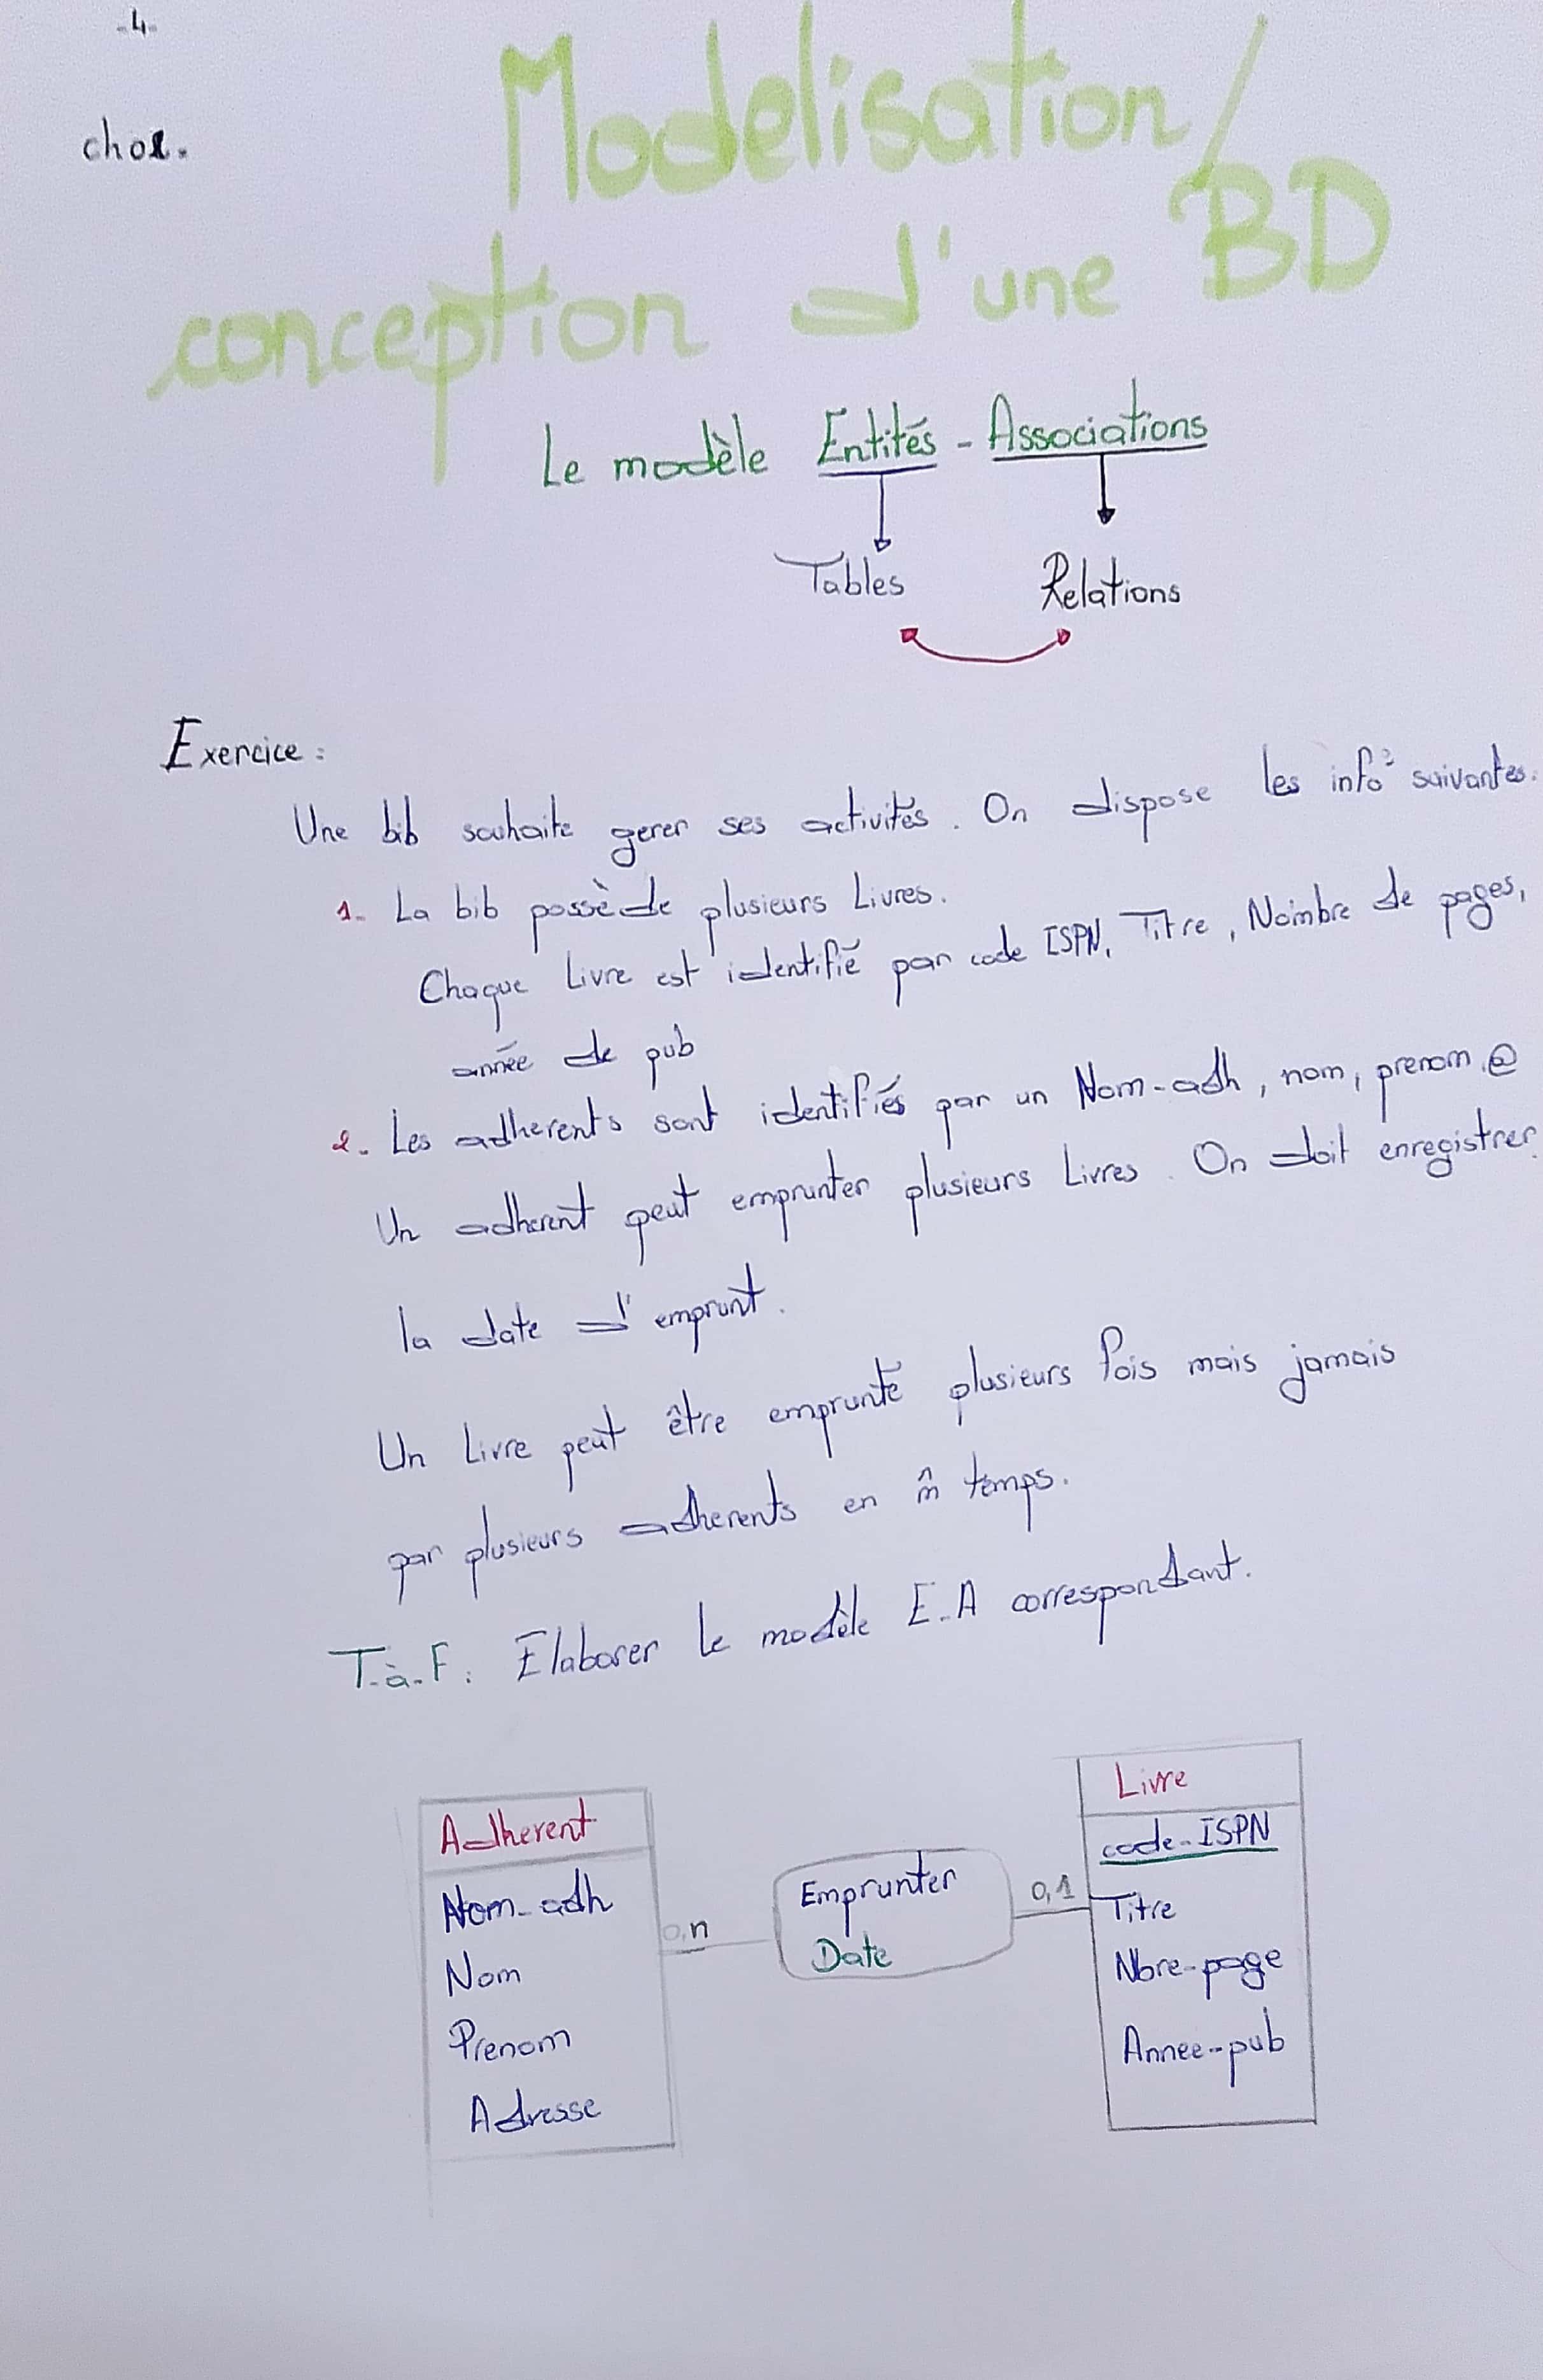 -4-
chol.
Modelisation/
conception d'une BD
Le modèle Entités - Associations
Tables Relations
Exercice :
Une bib souhaite gerer ses activités. On dispose les info² suivantes.
1- La bib possède plusieurs Livres.
Chaque Livre est identifié par code ISPN, Titre, Nombre de pages,
année de pub
2- Les adherents sont identifiés par un Nom-adh, nom, prenom, @
Un adherent peut emprunter plusieurs Livres. On doit enregistrer
la date d'emprunt.
Un Livre peut être emprunté plusieurs fois mais jamais
par plusieurs adherents en m̂ temps.
T-à-F: Elaborer le modèle E-A correspondant.
Adherent
Nom-adh
Nom
Prenom
Adresse
0,n
Emprunter
Date
0,1
Livre
code-ISPN
Titre
Nbre-page
Annee-pub